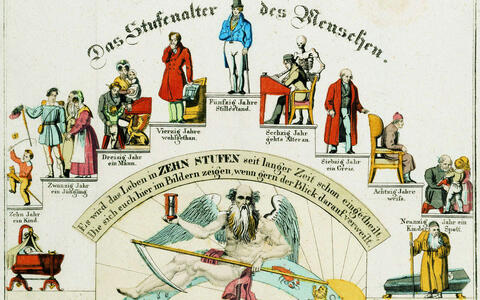 Das Stufenalter des Menschen.
Fünfzig Jahre
Stillestand.
Vierzig Jahre
wohlgethan.
Sechzig Jahr
gehts Alter an.
Dreissig Jahr
ein Mann.
Siebzig Jahr
ein Greis.
Zwanzig Jahr
ein Jüngling
Achtzig Jahre
weiss.
Zehn Jahr
ein Kind.
Neunzig Jahr ein
Kinder Spott.
Es wird das Leben in ZEHN STUFEN seit langer Zeit schon eingetheilt.
Die sich auch hier im Bildern zeigen, wenn gern der Blick darauf verweilt.